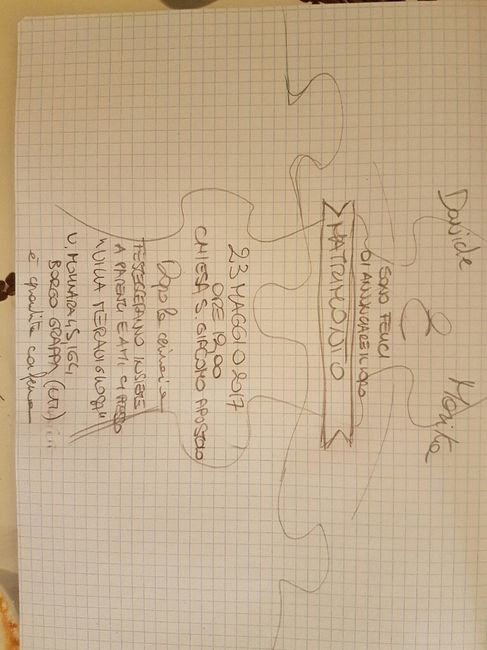 Davide
&
Monica
SONO FELICI
DI ANNUNCIARE IL LORO
MATRIMONIO
23 MAGGIO 2017
ORE 12.00
CHIESA S GIACOMO APOSTOLO
Dopo la cerimonia
FESTEGGERANNO INSIEME
A PARENTI E AMICI PRESSO
"VILLA MERAVIGLIOSA"
BORGO GRAPPA (LT)
è gradita conferma